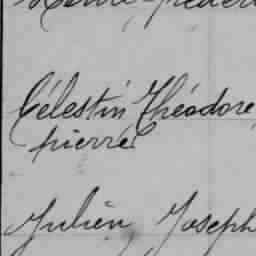 Célestin Théodore
pierre
Julien Joseph